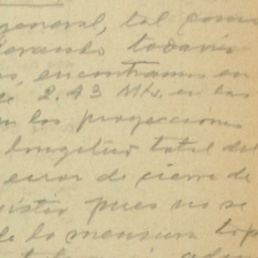 general, tal como
todavía
encontramos en
de 2.43 Mts. en las
en las proyecciones
longitud total del
error de cierre de
pues no se
de la mensura top